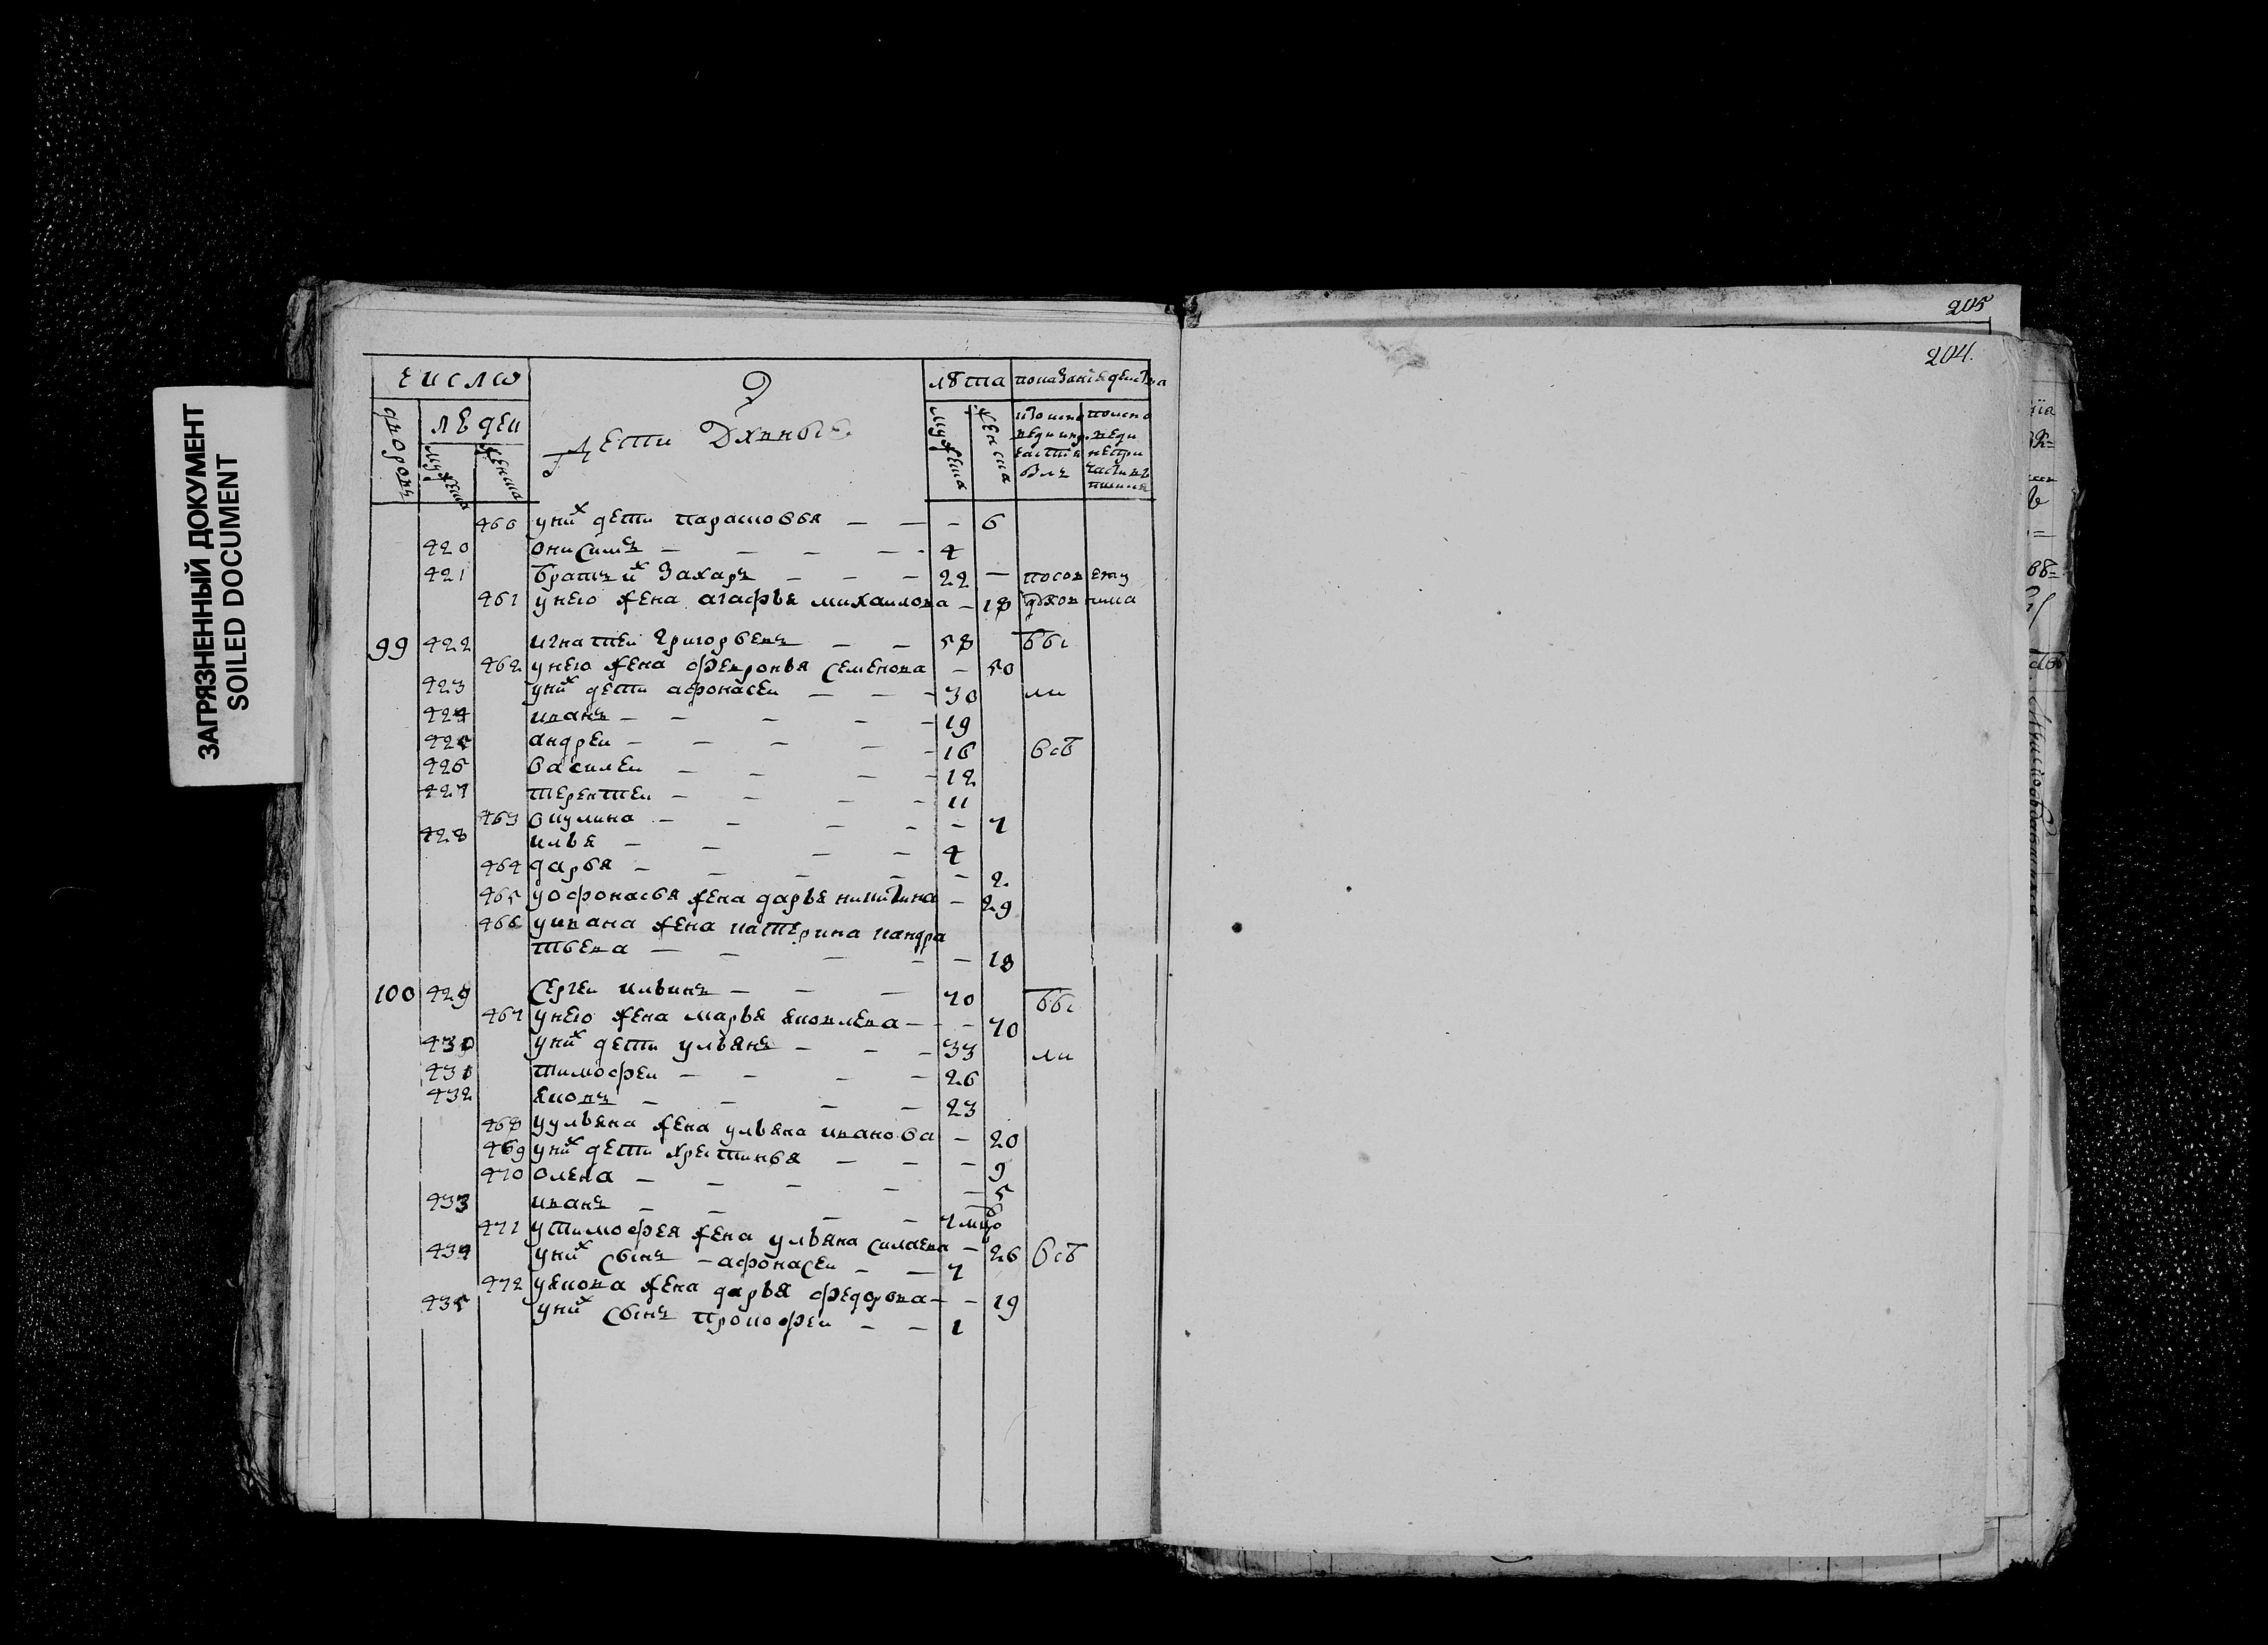 ЗАГРЯЗНЕННЫЙ ДОКУМЕНТ
SOILED DOCUMENT
205
204.
число
дворовъ
людеи
мужеска
женска
Дети Дхвные
лѣта
мужеска
женска
460 уних дети парасковья — — — 6
420 онисимъ — — — — 4
421 братъ их Захаръ — — — 22 —
461 унего жена агафья михаилова — 18
99 422 игнатеи григорьевъ — — 58 бы
462 унего жена февронья семенова — 50
423 уних дети афонасеи — — — 30 ли
424 иванъ — — — — — 19
425 андреи — — — — — 16 всѣ
426 василеи — — — — 12
427 терентеи — — — — 11
463 окулина — — — — — 7
428 илья — — — — 4
464 дарья — — — — — 2
465 уофонасья жена дарья никитина — 29
466 уивана жена катерина кандра
тьева — — — — — 18
100 429 сергеи ильинъ — — — 70 бы
467 унего жена марья яковлева — — 70
430 уних дети ульянъ — — — 33 ли
431 тимофеи — — — — 26
432 яковъ — — — — 23
468 уульяна жена ульяна иванова — 20
469 уних дети христинья — — — 9
470 олена — — — — — 5
433 иванъ — — — —
471 утимофея жена ульяна силаева — 26 всѣ
434 уних сынъ — афонасеи — — 7
472 уякова жена дарья федорова — — 19
435 уних сынъ прокофеи — — 1